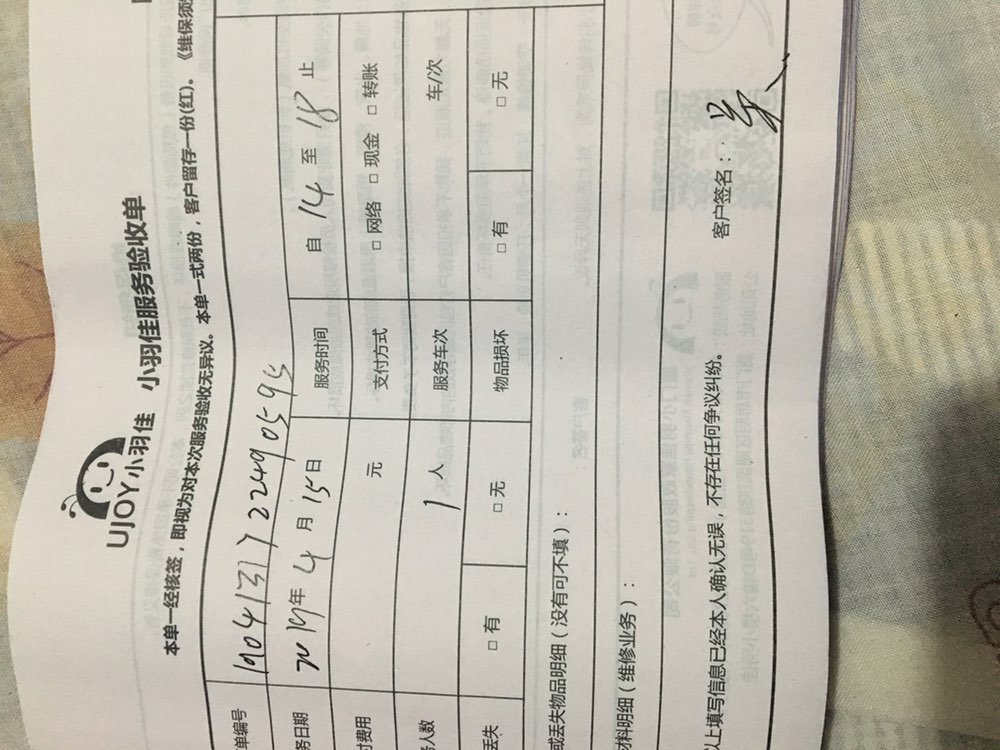 UJOY小羽佳 小羽佳服务验收单
本单一经核签，即视为对本次服务验收无异议。本单一式两份，客户留存一份(红)。《维保须
单编号 1904131722490595
务日期 2019年4月15日 服务时间 自14至18止
付费用 元 支付方式 □ 网络 □ 现金 □ 转账
务人数 1人 服务车次 车/次
丢失 □ 有 □ 无 物品损坏 □ 有 □ 无
或丢失物品明细（没有可不填）：
材料明细（维修业务）：
以上填写信息已经本人确认无误，不存在任何争议纠纷。 客户签名：